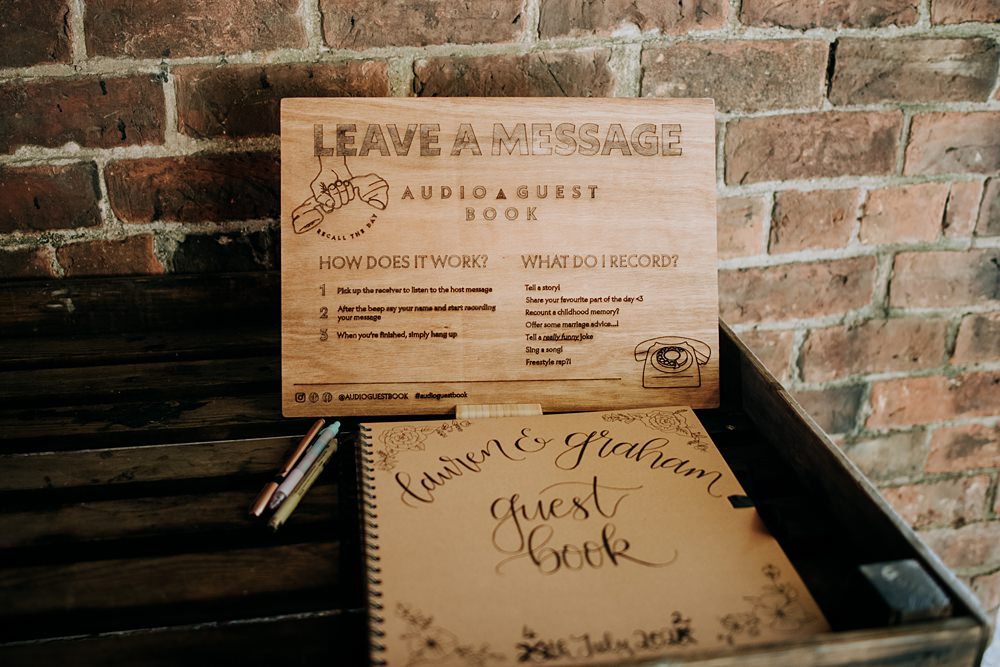 LEAVE A MESSAGE
AUDIO GUEST
BOOK
RECALL THE DAY
HOW DOES IT WORK?
1 Pick up the receiver to listen to the host message
2 After the beep say your name and start recording
your message
3 When you're finished, simply hang up
WHAT DO I RECORD?
Tell a story!
Share your favourite part of the day <3
Recount a childhood memory?
Offer some marriage advice...!
Tell a really funny joke
Sing a song!
Freestyle rap?!
@AUDIOGUESTBOOK #audioguestbook
Lauren & Graham
Guest
Book
July